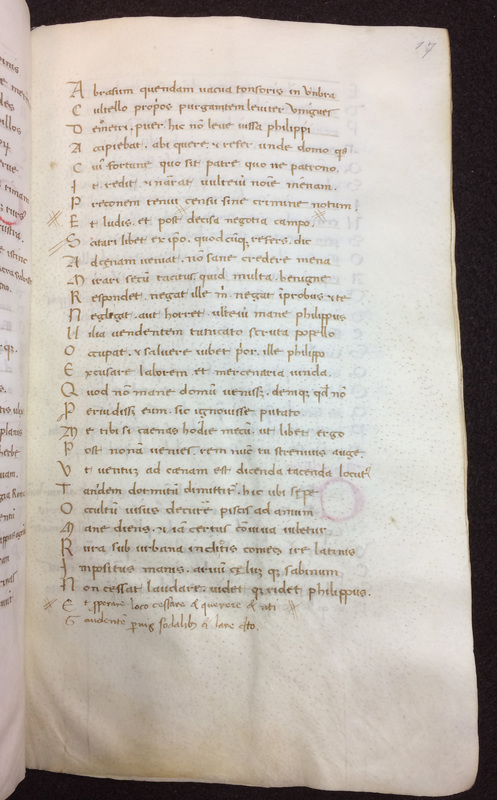 17
A brasum quendam uacua tonsoris in Vmbra
C ultello propos purgantem leuiter Vnguet
D emetri, puer hic nō leue iussa philippi
A capiebat. abi quere, & refer unde domo qs
C ui fortune quo sit patre quo ne patrono.
I t redit & narat uulteiū noīe menam.
P reconem tenui censu sine crimine notum
E t ludis. et post decisa negotia campo.
S citari libet ex ipo. quodcūq; refers. dic
A d cenam ueniat. nō sane credere mena
M irari secū tacitus quid multa. benigne
R espondet. negat ille m̄. negat iprobus & te
N eglegit. aut horret uulteiū mane philippus
V ilia uendentem tunicato scruta popello
O ccupat. & saluere iubet por. ille philippo
E xcusare laborem et mercenaria uincla.
Q uod nō mane domū uenisss. demq; qd nō
P rouidiss eum. sic ignouisse putato
M e tibi si caenas hodie mecū. ut libet ergo
P ost nonā uenies. rem nūc tu strenuus auge.
V t uentū ad caenam est dicenda tacenda locut'
T andem dormitū dimittit. hic ubi sepe
O ccultū uisus decurre. piscis ad amum
M ane cliens & iā certus cōuiua iubetur
R ura sub urbana indictis comes ire latinis
I mpositus manis. aruū celūq; sabinum
N on cessat laudare. uidet q; ridet philippus.
E t sperare loco cessare & querere & uti
G audentē paruis sodalib; & lare certo.